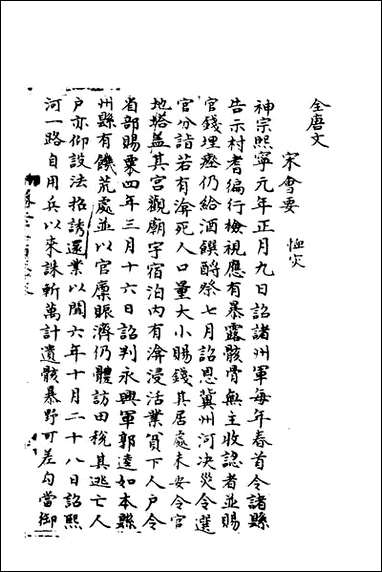 全唐文
宋會要 恤灾
神宗熙寧元年正月九日詔諸州軍每年春首令諸縣
告示村耆徧行檢視應有暴露骸骨無主收認者並賜
官錢埋瘞仍給酒饌酹祭七月詔恩冀州河决災令選
官分詣若有渰死人口量大小賜錢其居處未安令官
地搭盖其宫觀廟宇宿泊内有渰浸活業貧下人户令
省部賜粟四年三月十六日詔判永興軍郭逵如本縣
州縣有饑荒處並以官廪賑濟仍體訪田稅其逃亡人
户亦仰設法招誘還業以聞六年十月二十八日詔熙
河一路自用兵以來誅斬萬計遺骸暴野可差勾當御